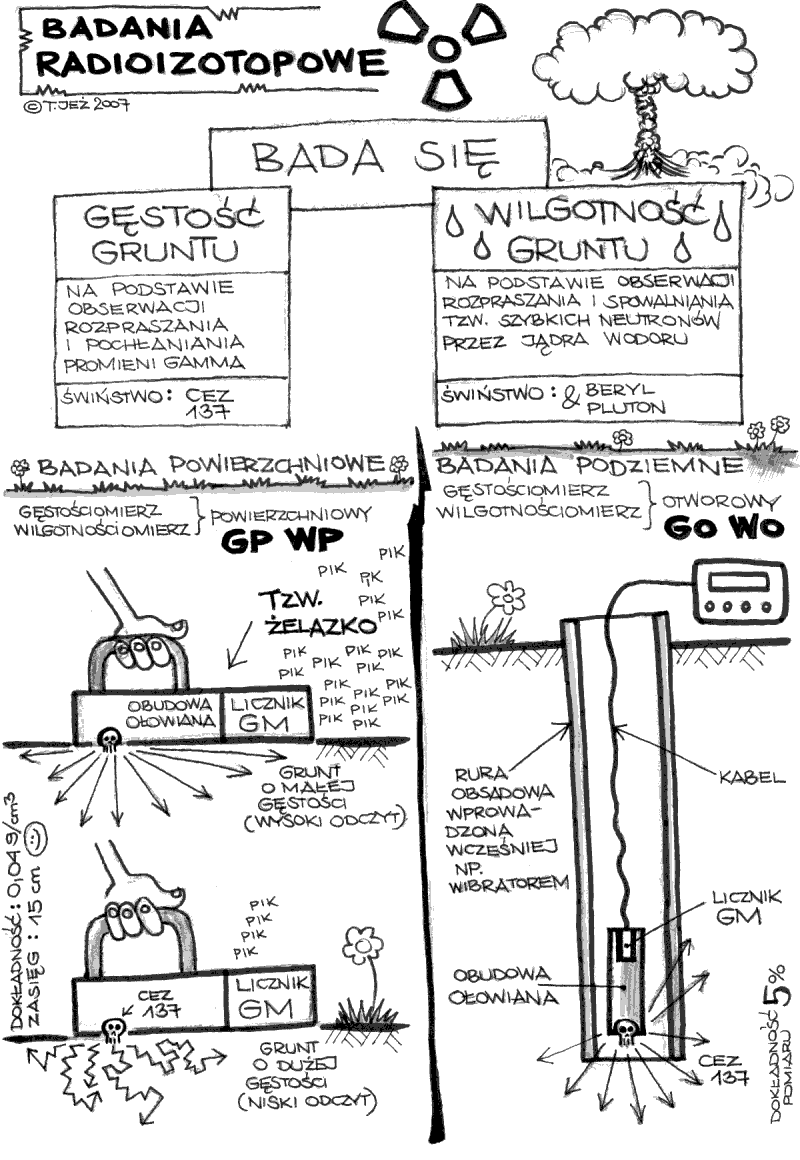 BADANIA
RADIOIZOTOPOWE
© T. JEŻ 2007
BADA SIĘ
GĘSTOŚĆ
GRUNTU
NA PODSTAWIE
OBSERWACJI
ROZPRASZANIA
I POCHŁANIANIA
PROMIENI GAMMA
ŚWIŃSTWO: CEZ
137
WILGOTNOŚĆ
GRUNTU
NA PODSTAWIE OBSERWACJI
ROZPRASZANIA I SPOWALNIANIA
TZW. SZYBKICH NEUTRONÓW
PRZEZ JĄDRA WODORU
ŚWIŃSTWO: & BERYL
PLUTON
BADANIA POWIERZCHNIOWE
GĘSTOŚCIOMIERZ
WILGOTNOŚCIOMIERZ } POWIERZCHNIOWY
GP WP
TZW.
ŻELAZKO
PIK
PIK PIK
PIK
PIK
PIK PIK PIK
PIK PIK PIK
PIK PIK
PIK PIK PIK
PIK PIK PIK
PIK PIK
OBUDOWA
OŁOWIANA
LICZNIK
GM
GRUNT
O MAŁEJ
GĘSTOŚCI
(WYSOKI ODCZYT)
DOKŁADNOŚĆ: 0,04 g/cm3
ZASIĘG: 15 cm
PIK
PIK
PIK
PIK
CEZ
137
LICZNIK
GM
GRUNT
O DUŻEJ
GĘSTOŚCI
(NISKI ODCZYT)
BADANIA PODZIEMNE
GĘSTOŚCIOMIERZ
WILGOTNOŚCIOMIERZ } OTWOROWY
GO WO
RURA
OBSADOWA
WPROWA-
DZONA
WCZEŚNIEJ
NP.
WIBRATOREM
KABEL
LICZNIK
GM
OBUDOWA
OŁOWIANA
CEZ
137
DOKŁADNOŚĆ 5%
POMIARU